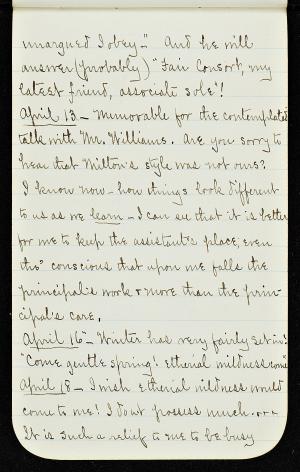 unargued I obey." And he will
answer (probably) "Fair Consort, my
latest friend, associate sole"!
April 13 - Memorable for the contemplated
talk with Mr. Williams. Are you sorry to
hear that Milton's style was not ours?
I know now - how things look different
to us as we learn - I can see that it is better
for me to keep the assistant's place, even
tho' conscious that upon me falls the
principal's work & more than the prin-
cipal's care.
April 16 - Winter has very fairly set in!
"Come gentle spring! etherial mildness come"
April 18 - I wish etherial mildness would
come to me! I don't possess much.
It is such a relief to me to be busy